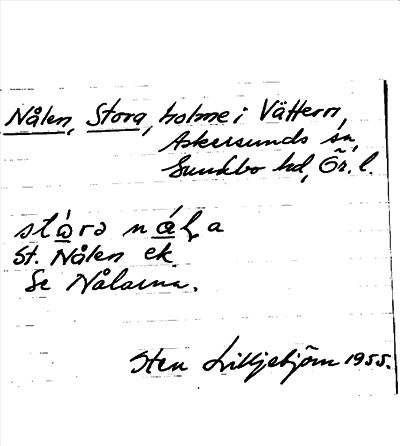 Nålen, Stora, holme i Vättern,
Askersunds sn,
Sundbo hd, Ör. l.
St. Nålen ek.
Se Nålarna.
Sten Lilljebjörn 1955.